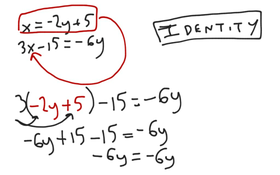 x = -2y + 5
3x - 15 = -6y
IDENTITY
3(-2y + 5) - 15 = -6y
-6y + 15 - 15 = -6y
-6y = -6y